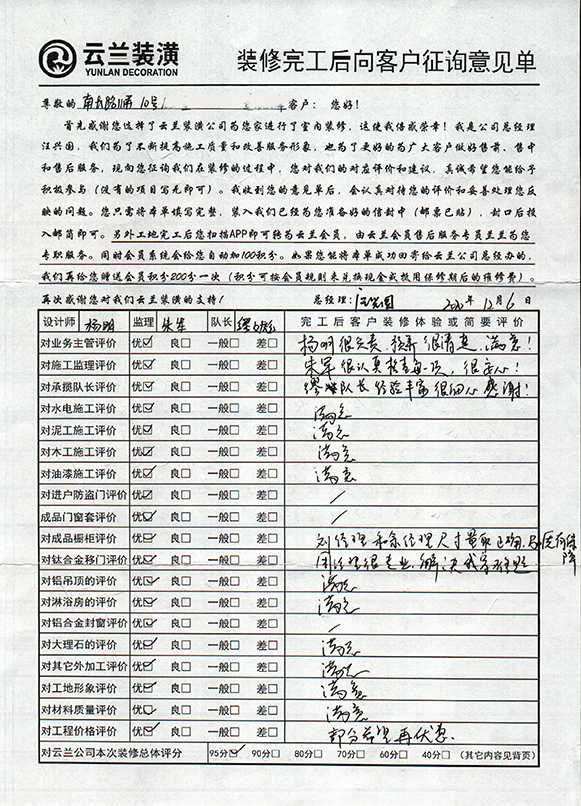 云兰装潢
YUNLAN DECORATION
装修完工后向客户征询意见单
尊敬的 10号 客户：您好！
首先感谢您选择了云兰装潢公司为您家进行了室内装修，这使我倍感荣幸！我是公司总经理
汪兴国，我们为了不断提高施工质量和改善服务形象，也为了更好的为广大客户做好售前、售中
和售后服务，现向您征询我们在装修的过程中，您对我们的对应评价和建议，真诚希望您能给予
积极参与（没有的项目写无即可）。我收到您的意见单后，会认真对待您的评价和妥善处理您反
映的问题。您只需将本单填写完整，装入我们已经为您准备好的信封中（邮票已贴），封口后投
入邮筒即可。另外工地完工后您扫描APP即可转为云兰会员，由云兰会员售后服务专员兰兰为您
专职服务。同时会员系统会给您自动加100积分。如果您能将本单成功回寄给云兰总经办的，
我们再给您赠送会员积分200分一次（积分可按会员规则来兑换现金或抵用保修期后的维修费）。
再次感谢您对我们云兰装潢的支持！ 总经理： 12月6日
设计师 杨明 监理 朱军 队长 完工后客户装修体验或简要评价
对业务主管评价 优☑ 良□ 一般□ 差□ 杨明很负责，很清楚，满意！
对施工监理评价 优☑ 良□ 一般□ 差□ 朱军很认真，很安心！
对承揽队长评价 优☑ 良□ 一般□ 差□ 队长经验丰富很细心 感谢！
对水电施工评价 优☑ 良□ 一般□ 差□ 满意
对泥工施工评价 优☑ 良□ 一般□ 差□ 满意
对木工施工评价 优☑ 良□ 一般□ 差□ 满意
对油漆施工评价 优☑ 良□ 一般□ 差□ 满意
对进户防盗门评价 优☑ 良□ 一般□ 差□ /
成品门窗套评价 优☑ 良□ 一般□ 差□ /
对成品橱柜评价 优☑ 良□ 一般□ 差□ 刘经理和 经理尺寸
对钛合金移门评价 优☑ 良□ 一般□ 差□ 周经理很专业，解决我家难题
对铝吊顶的评价 优☑ 良□ 一般□ 差□ 满意
对淋浴房的评价 优☑ 良□ 一般□ 差□ 满意
对铝合金封窗评价 优☑ 良□ 一般□ 差□ /
对大理石的评价 优☑ 良□ 一般□ 差□ 满意
对其它外加工评价 优☑ 良□ 一般□ 差□ 满意
对工地形象评价 优☑ 良□ 一般□ 差□ 满意
对材料质量评价 优☑ 良□ 一般□ 差□ 满意
对工程价格评价 优☑ 良□ 一般□ 差□ 部分希望再优惠
对云兰公司本次装修总体评分 95分☑ 90分□ 80分□ 70分□ 60分□ 40分□ （其它内容见背页）